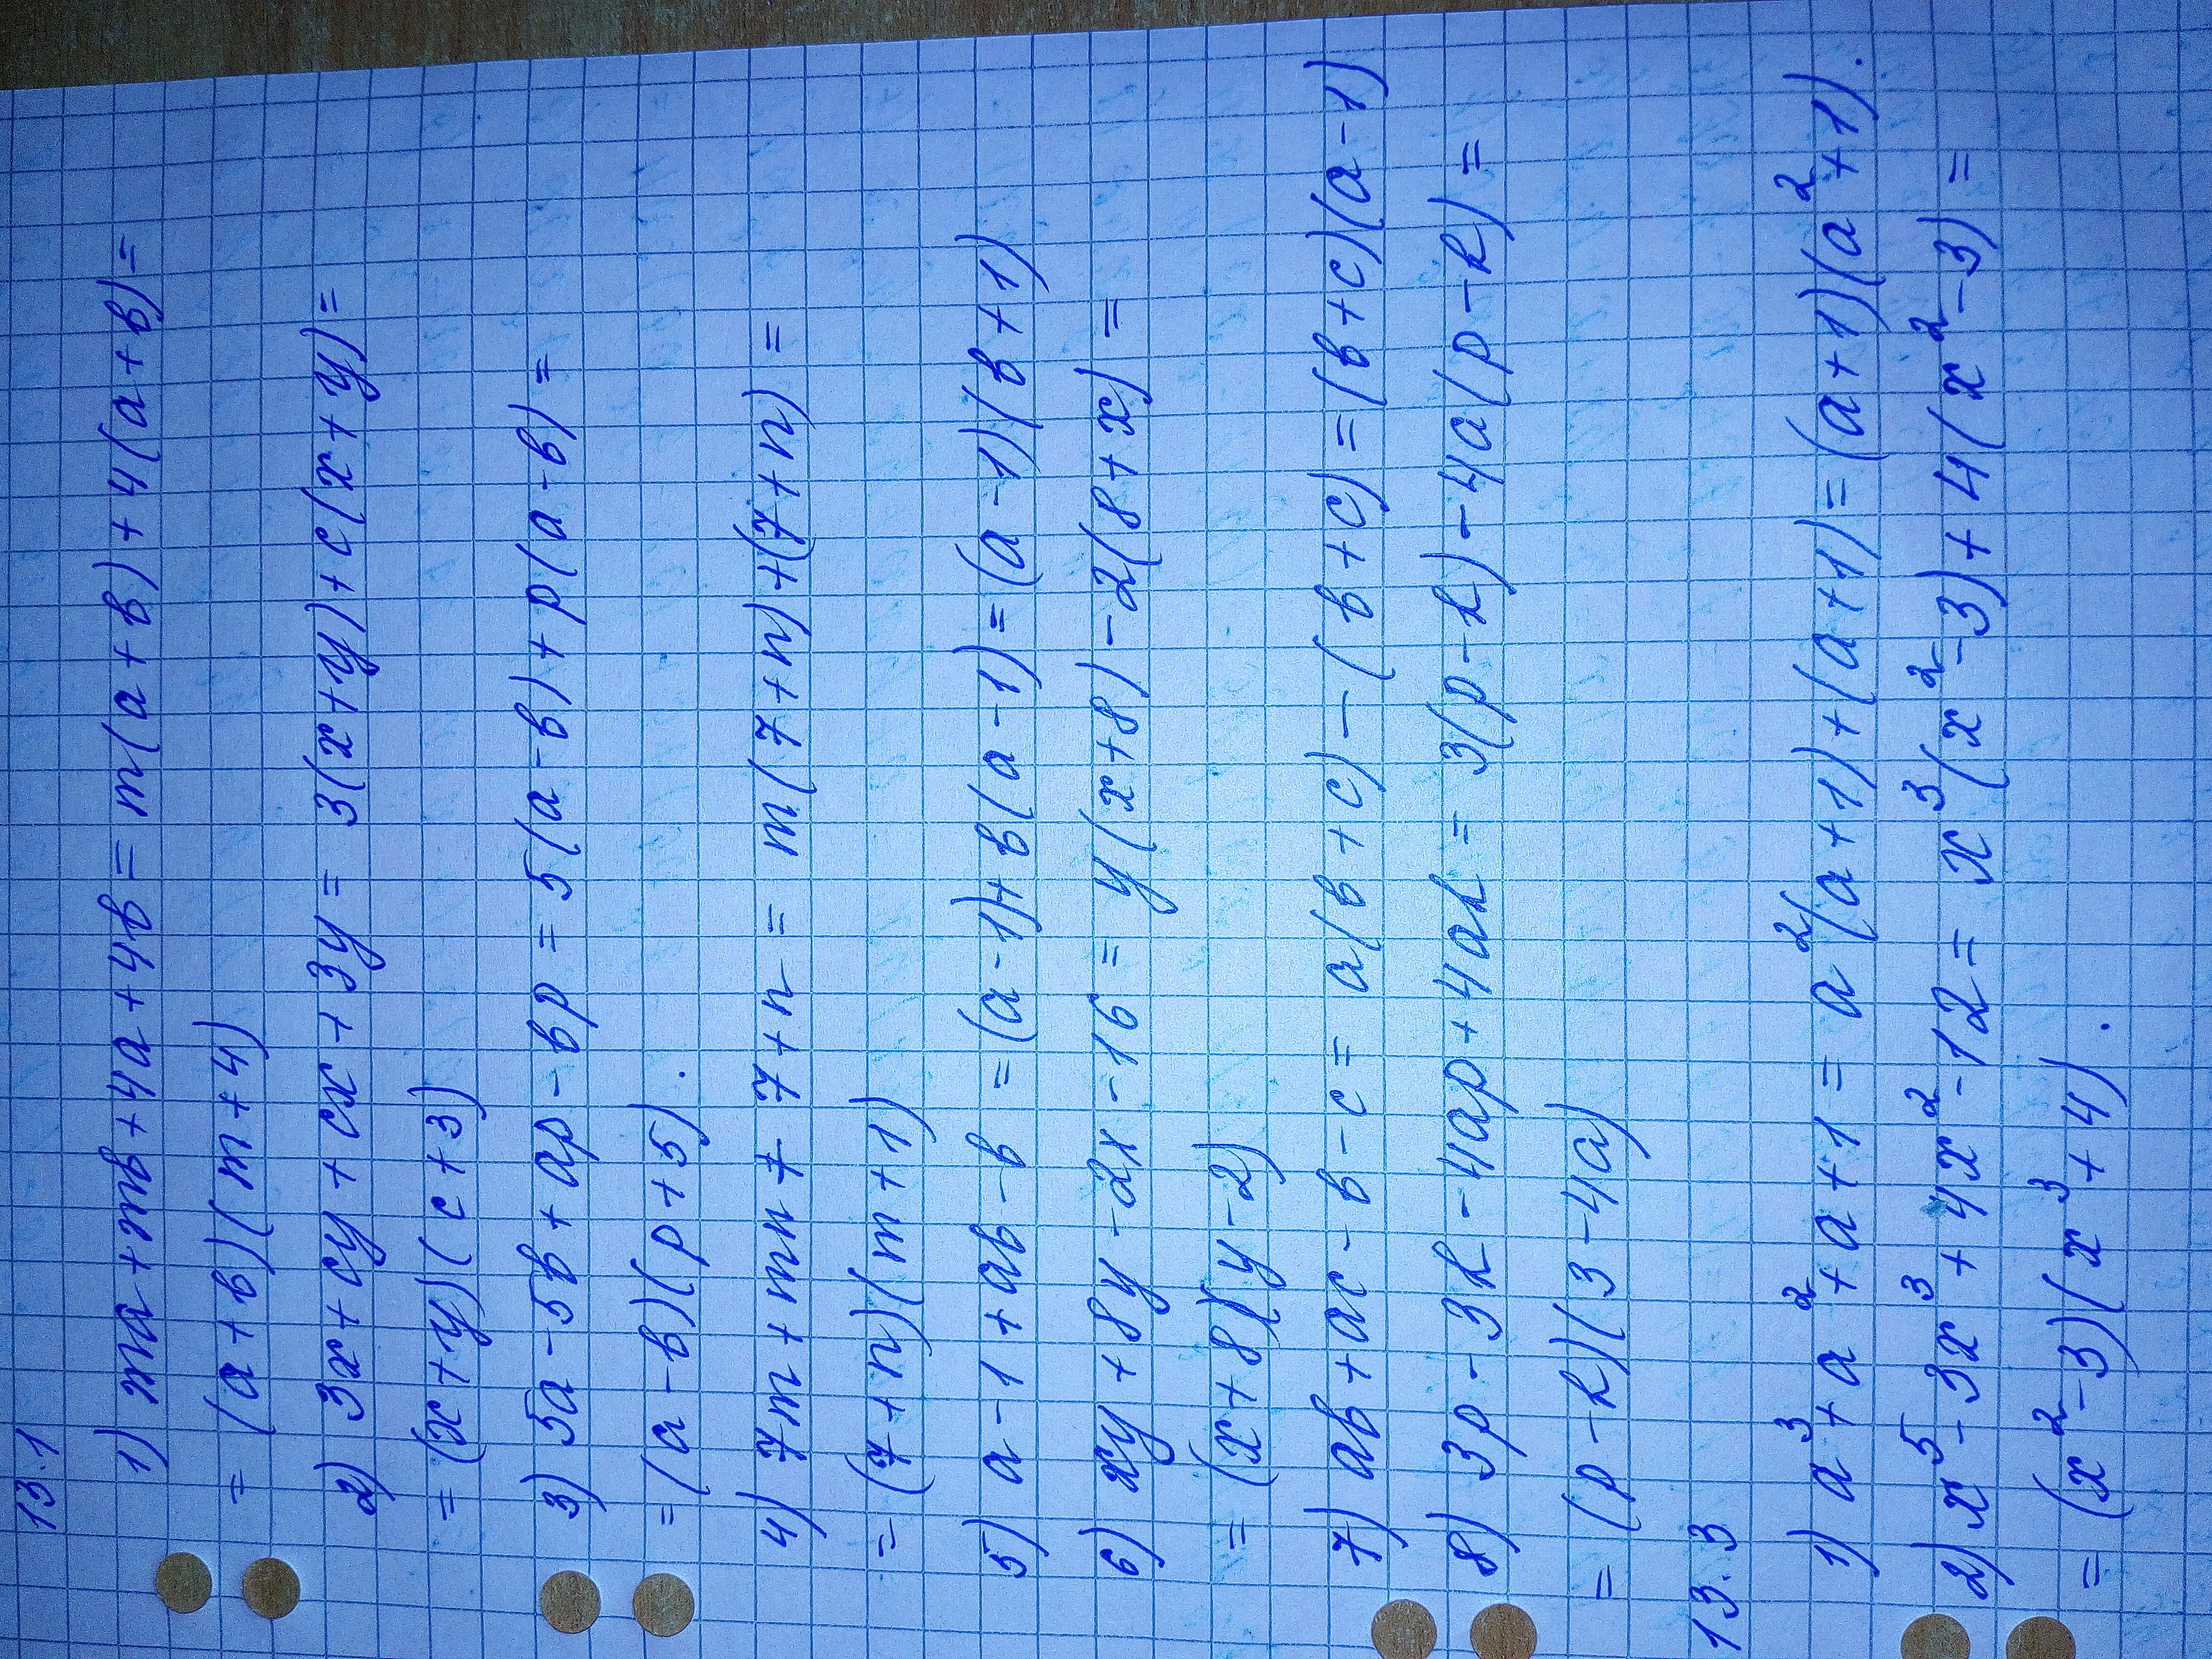 13.1
1) ma+mb+4a+4b=m(a+b)+4(a+b)=
=(a+b)(m+4)
2) 3x+cy+cx+3y=3(x+y)+c(x+y)=
=(x+y)(c+3)
3) 5a-5b+ap-bp=5(a-b)+p(a-b)=
=(a-b)(p+5).
4) 7m+mn+7+n=m(7+n)+(7+n)=
=(7+n)(m+1)
5) a-1+ab-b=(a-1)+b(a-1)=(a-1)(b+1)
6) xy+8y-2x-16=y(x+8)-2(8+x)=
=(x+8)(y-2)
7) ab+ac-b-c=a(b+c)-(b+c)=(b+c)(a-1)
8) 3p-3k-4ap+4ak=3(p-k)-4a(p-k)=
=(p-k)(3-4a)
13.3
1) a³+a²+a+1=a²(a+1)+(a+1)=(a+1)(a²+1).
2) x⁵-3x³+4x²-12=x³(x²-3)+4(x²-3)=
=(x²-3)(x³+4).